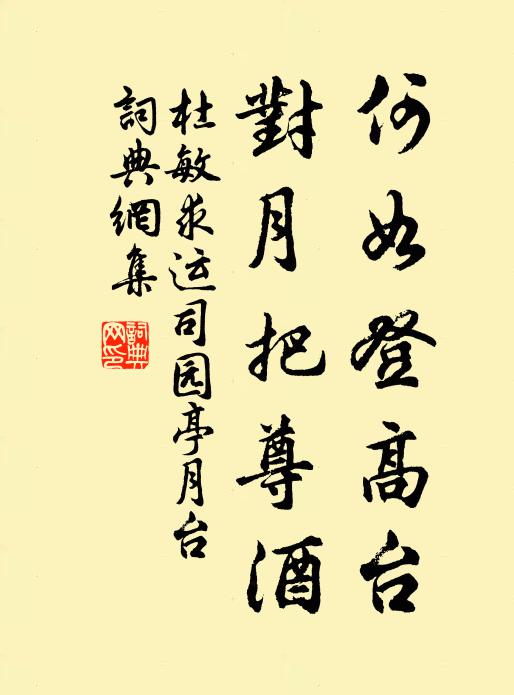 何如登高台
對月把尊酒
杜敏求运司园亭月台
詞典網集
詞典網印